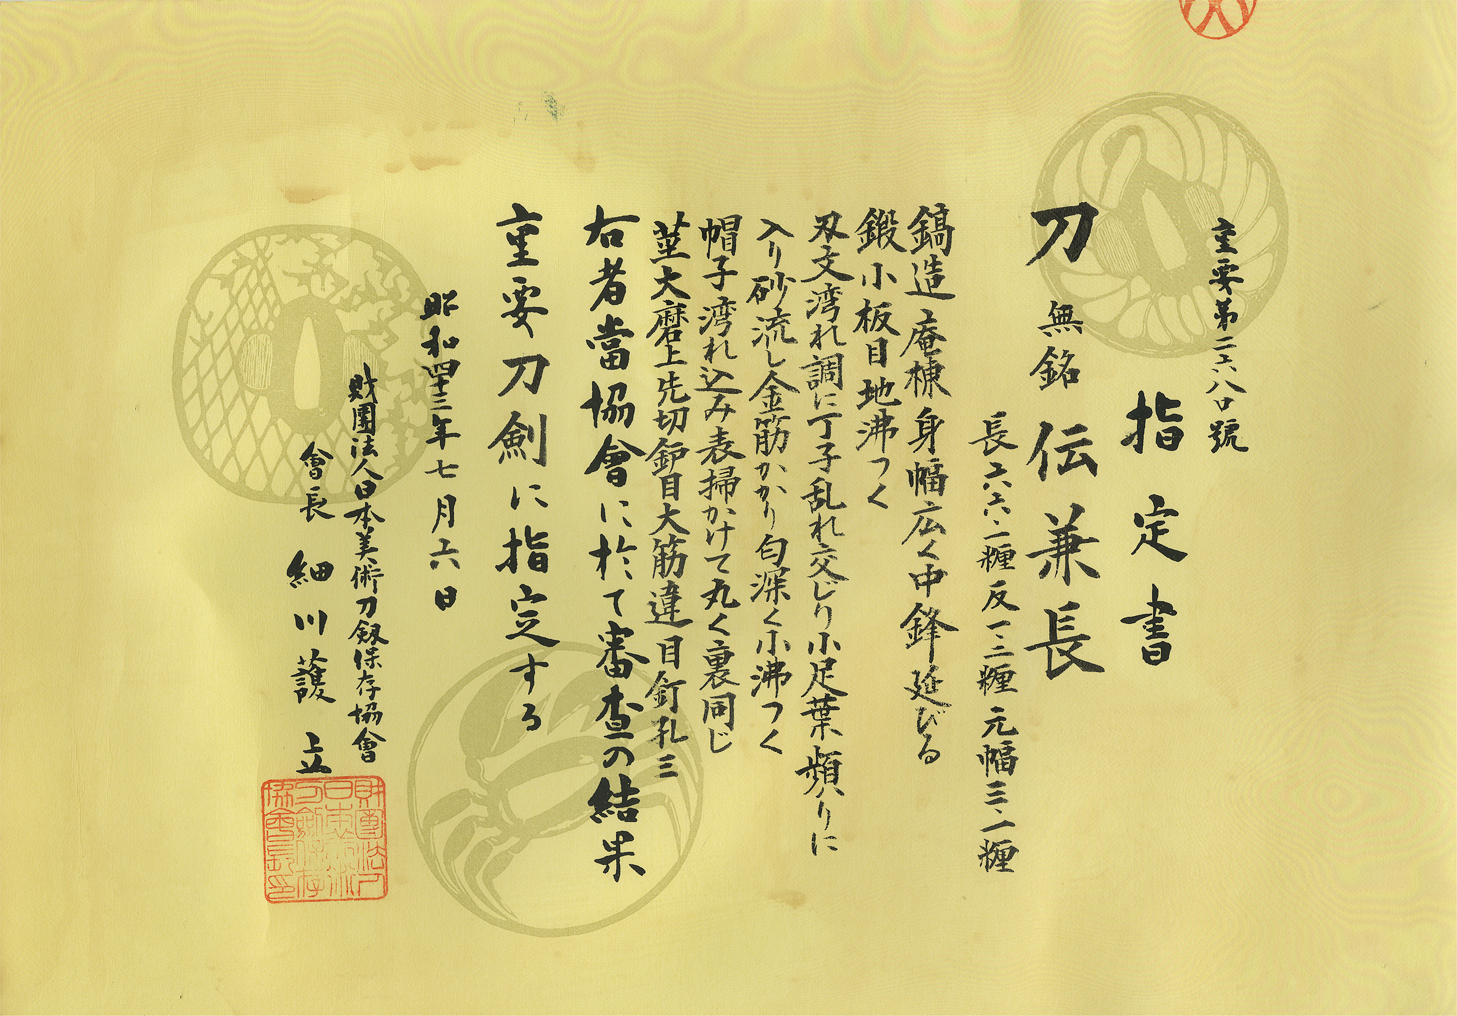 重要第二六八〇號
指定書
刀 無銘 伝兼長
長六六・二糎 反一・二糎 元幅三・一糎
鎬造庵棟身幅広く中鋒延びる
鍛小板目地沸つく
刃文湾れ調に丁子乱れ交じり小足葉頻りに
入り砂流し金筋かかり匂深く小沸つく
帽子湾れ込み表掃かけて丸く裏同じ
茎大磨上先切鈩目大筋違目釘孔三
右者當協會に於て審査の結果
重要刀剣に指定する
昭和四十三年七月六日
財團法人日本美術刀剱保存協會
會長 細川護立
財團法人日本美術刀劍保存協會長印